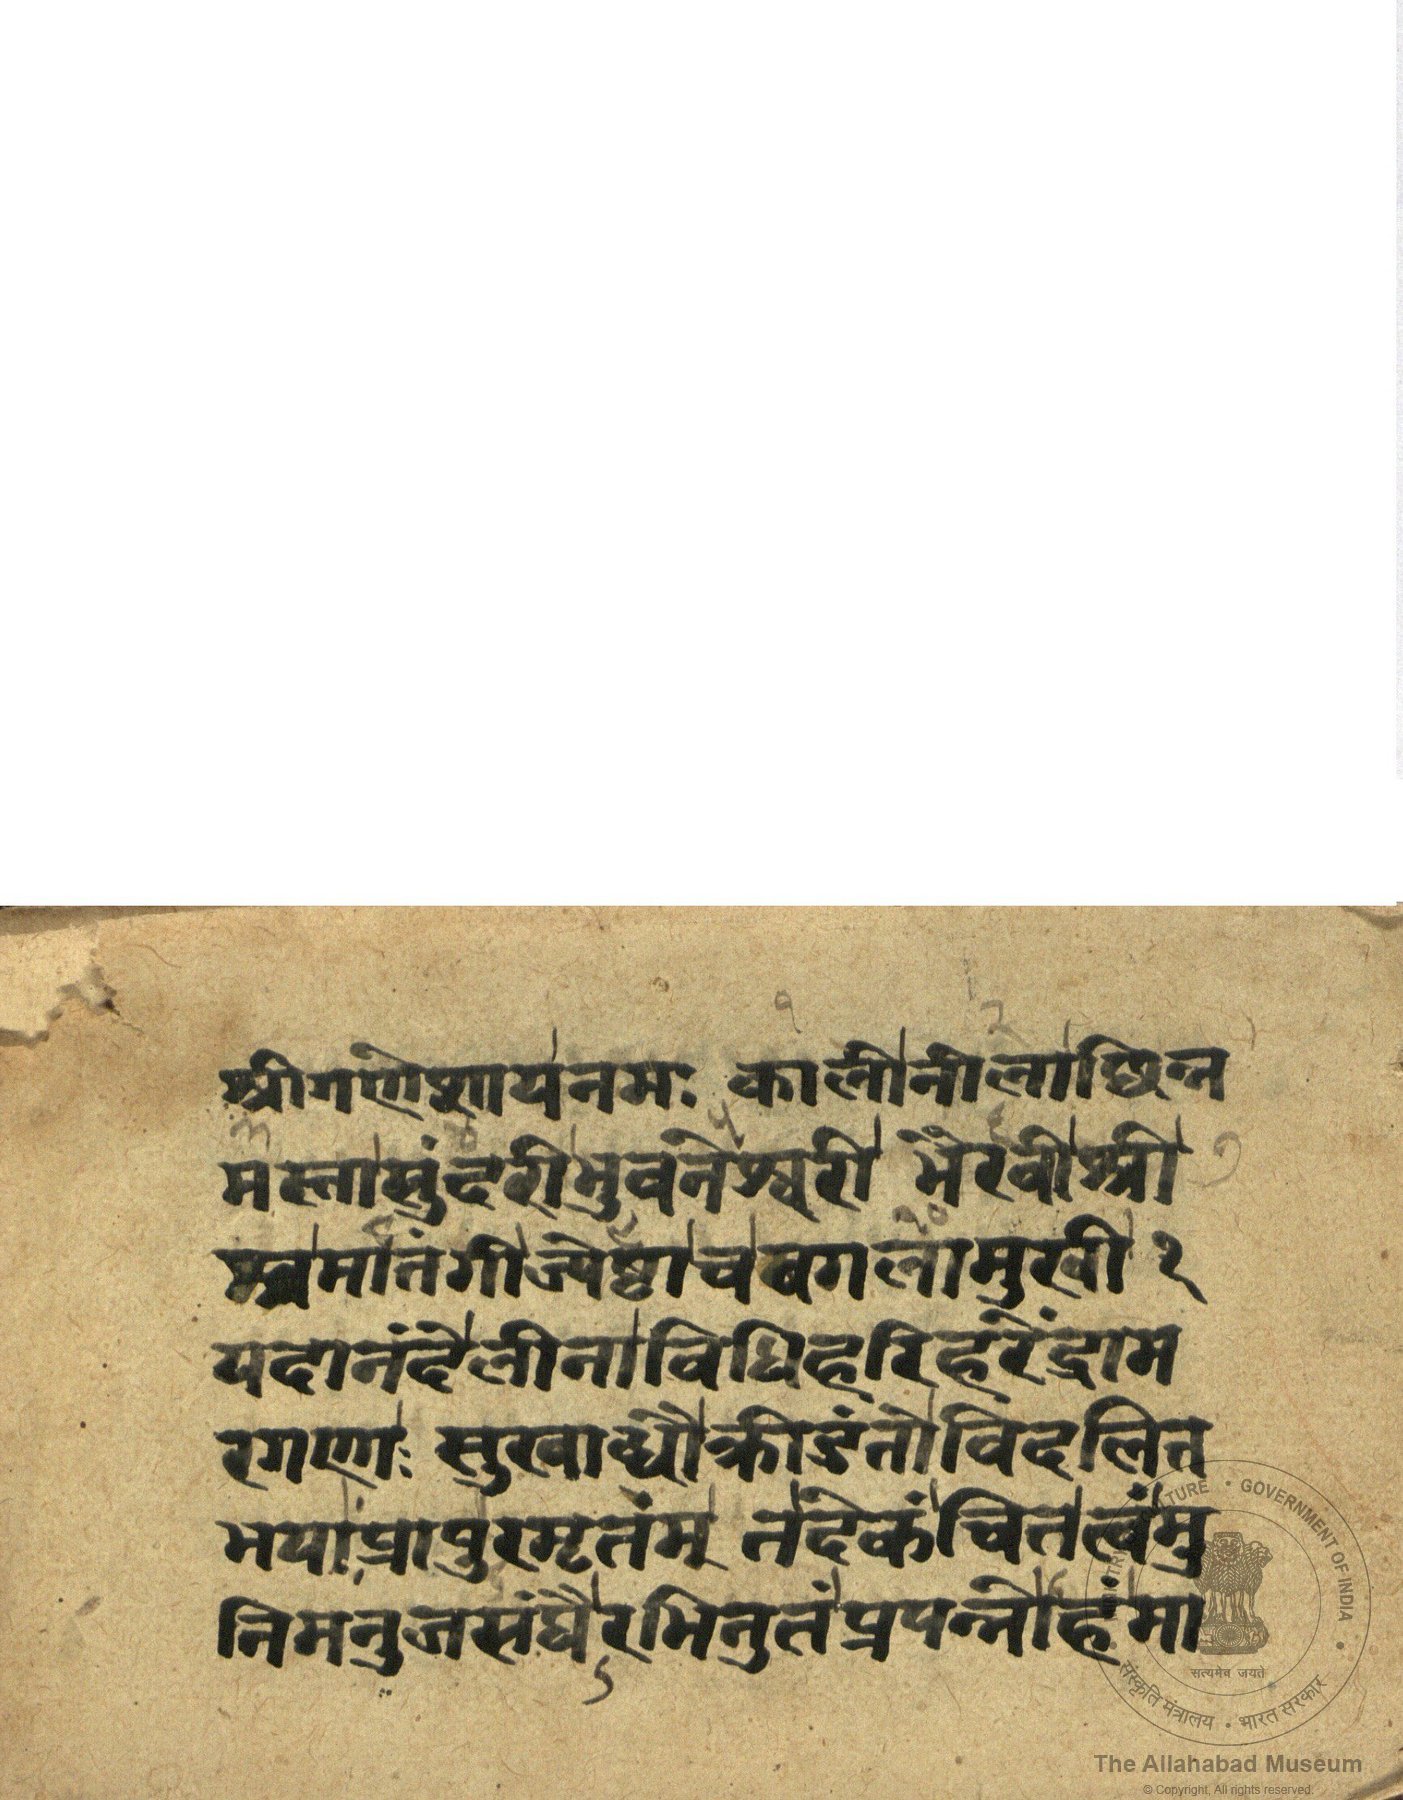 १ २
श्रीगणेशायनमः कालीनीलाछिन्न
३ ४ ५ ६ ७
मस्तासुंदरीभुवनेश्वरी भैरवीश्री
८ ९ १०
मातंगीज्येष्ठाचबगलामुखी १
यदानंदेलीनाविधिहरिहरेंद्राम
रगणाः सुखाब्धौक्रीडंतोविदलित
भयाःप्रापुरमृतंम् तंदेकंचितत्वंमु
निमनुजसंघैरभिनुतंप्रपन्नोहंमा
MINISTRY OF CULTURE • GOVERNMENT OF INDIA
सत्यमेव जयते
संस्कृति मंत्रालय • भारत सरकार
The Allahabad Museum
© Copyright, All rights reserved.